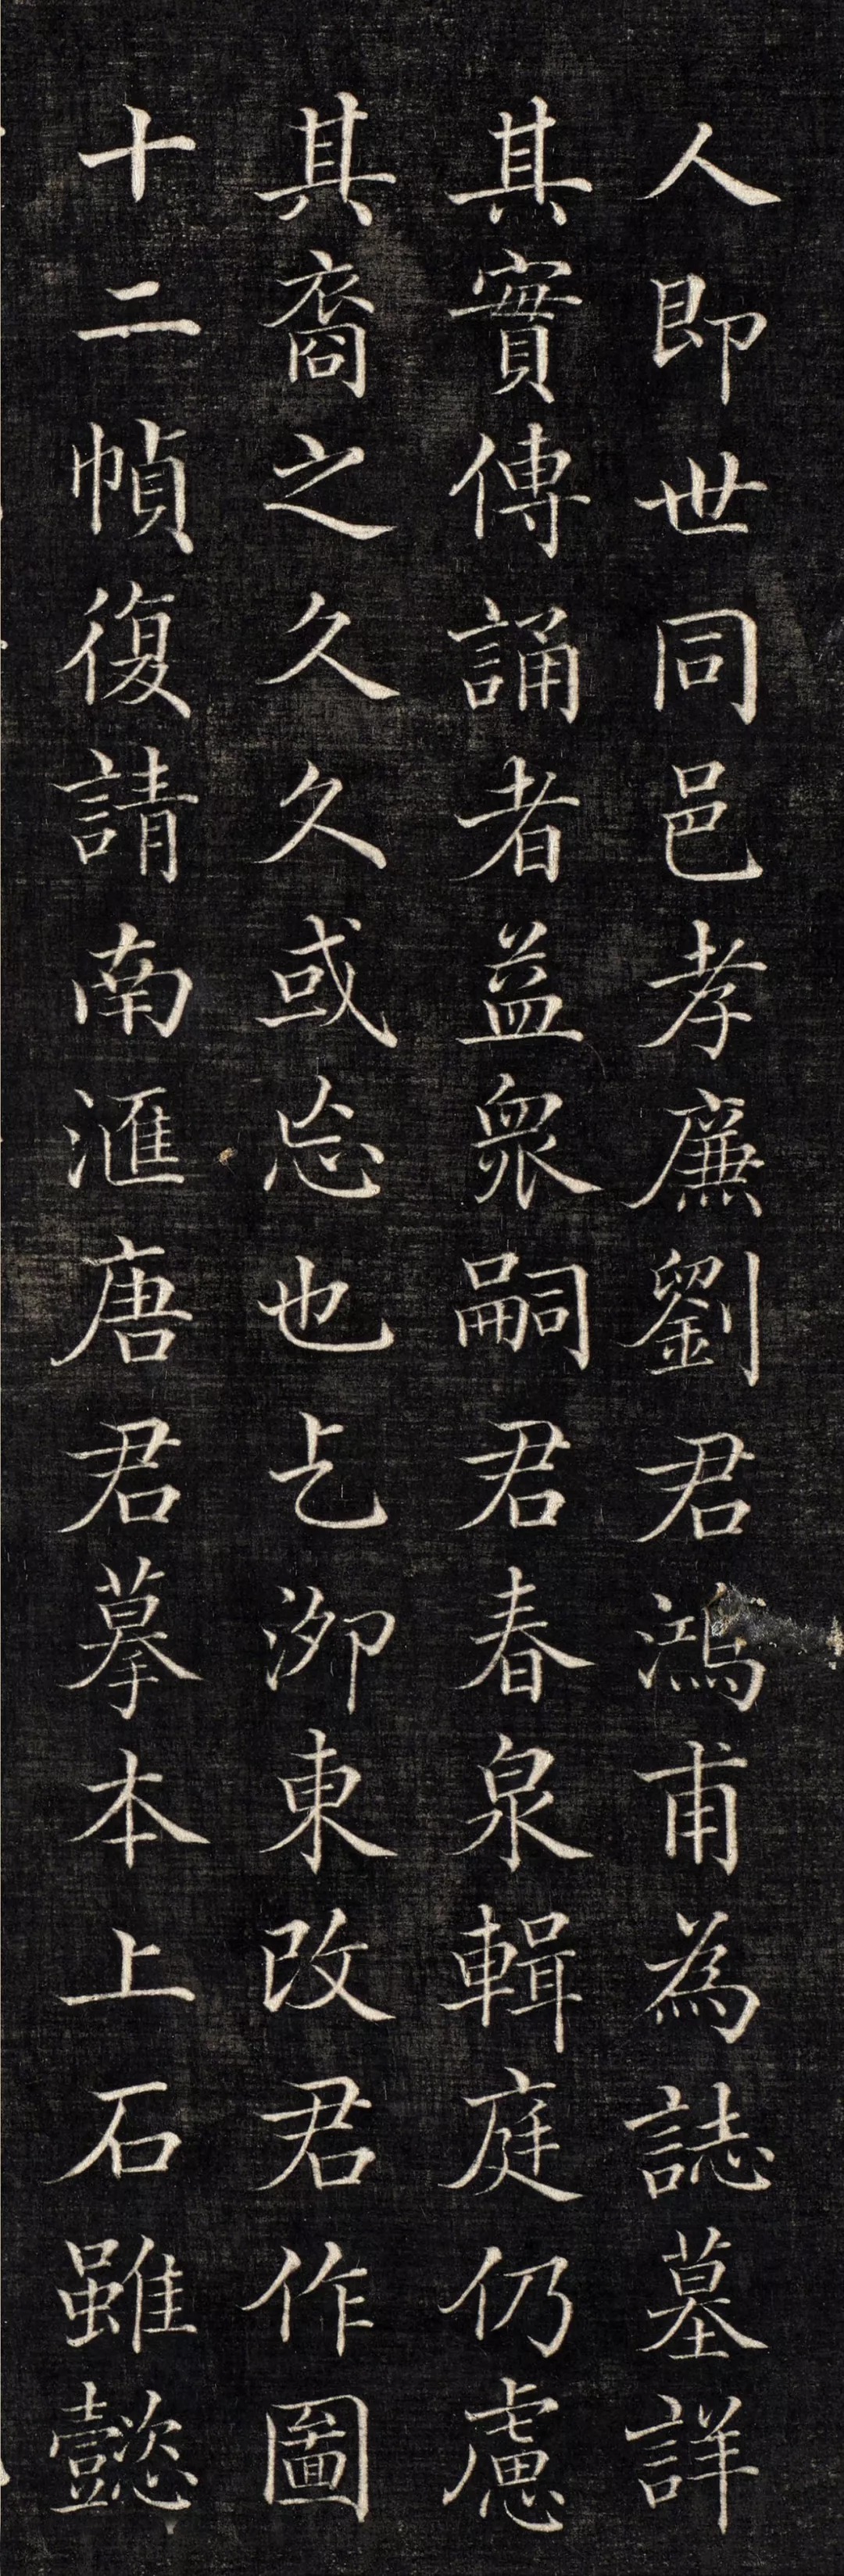 人即世同邑孝廉劉君鴻甫為誌墓詳
其實傳誦者益眾嗣君春泉輯庭仍慮
其裔之久久或忘也乞泖東改君作圖
十二幀復請南滙唐君摹本上石雖懿